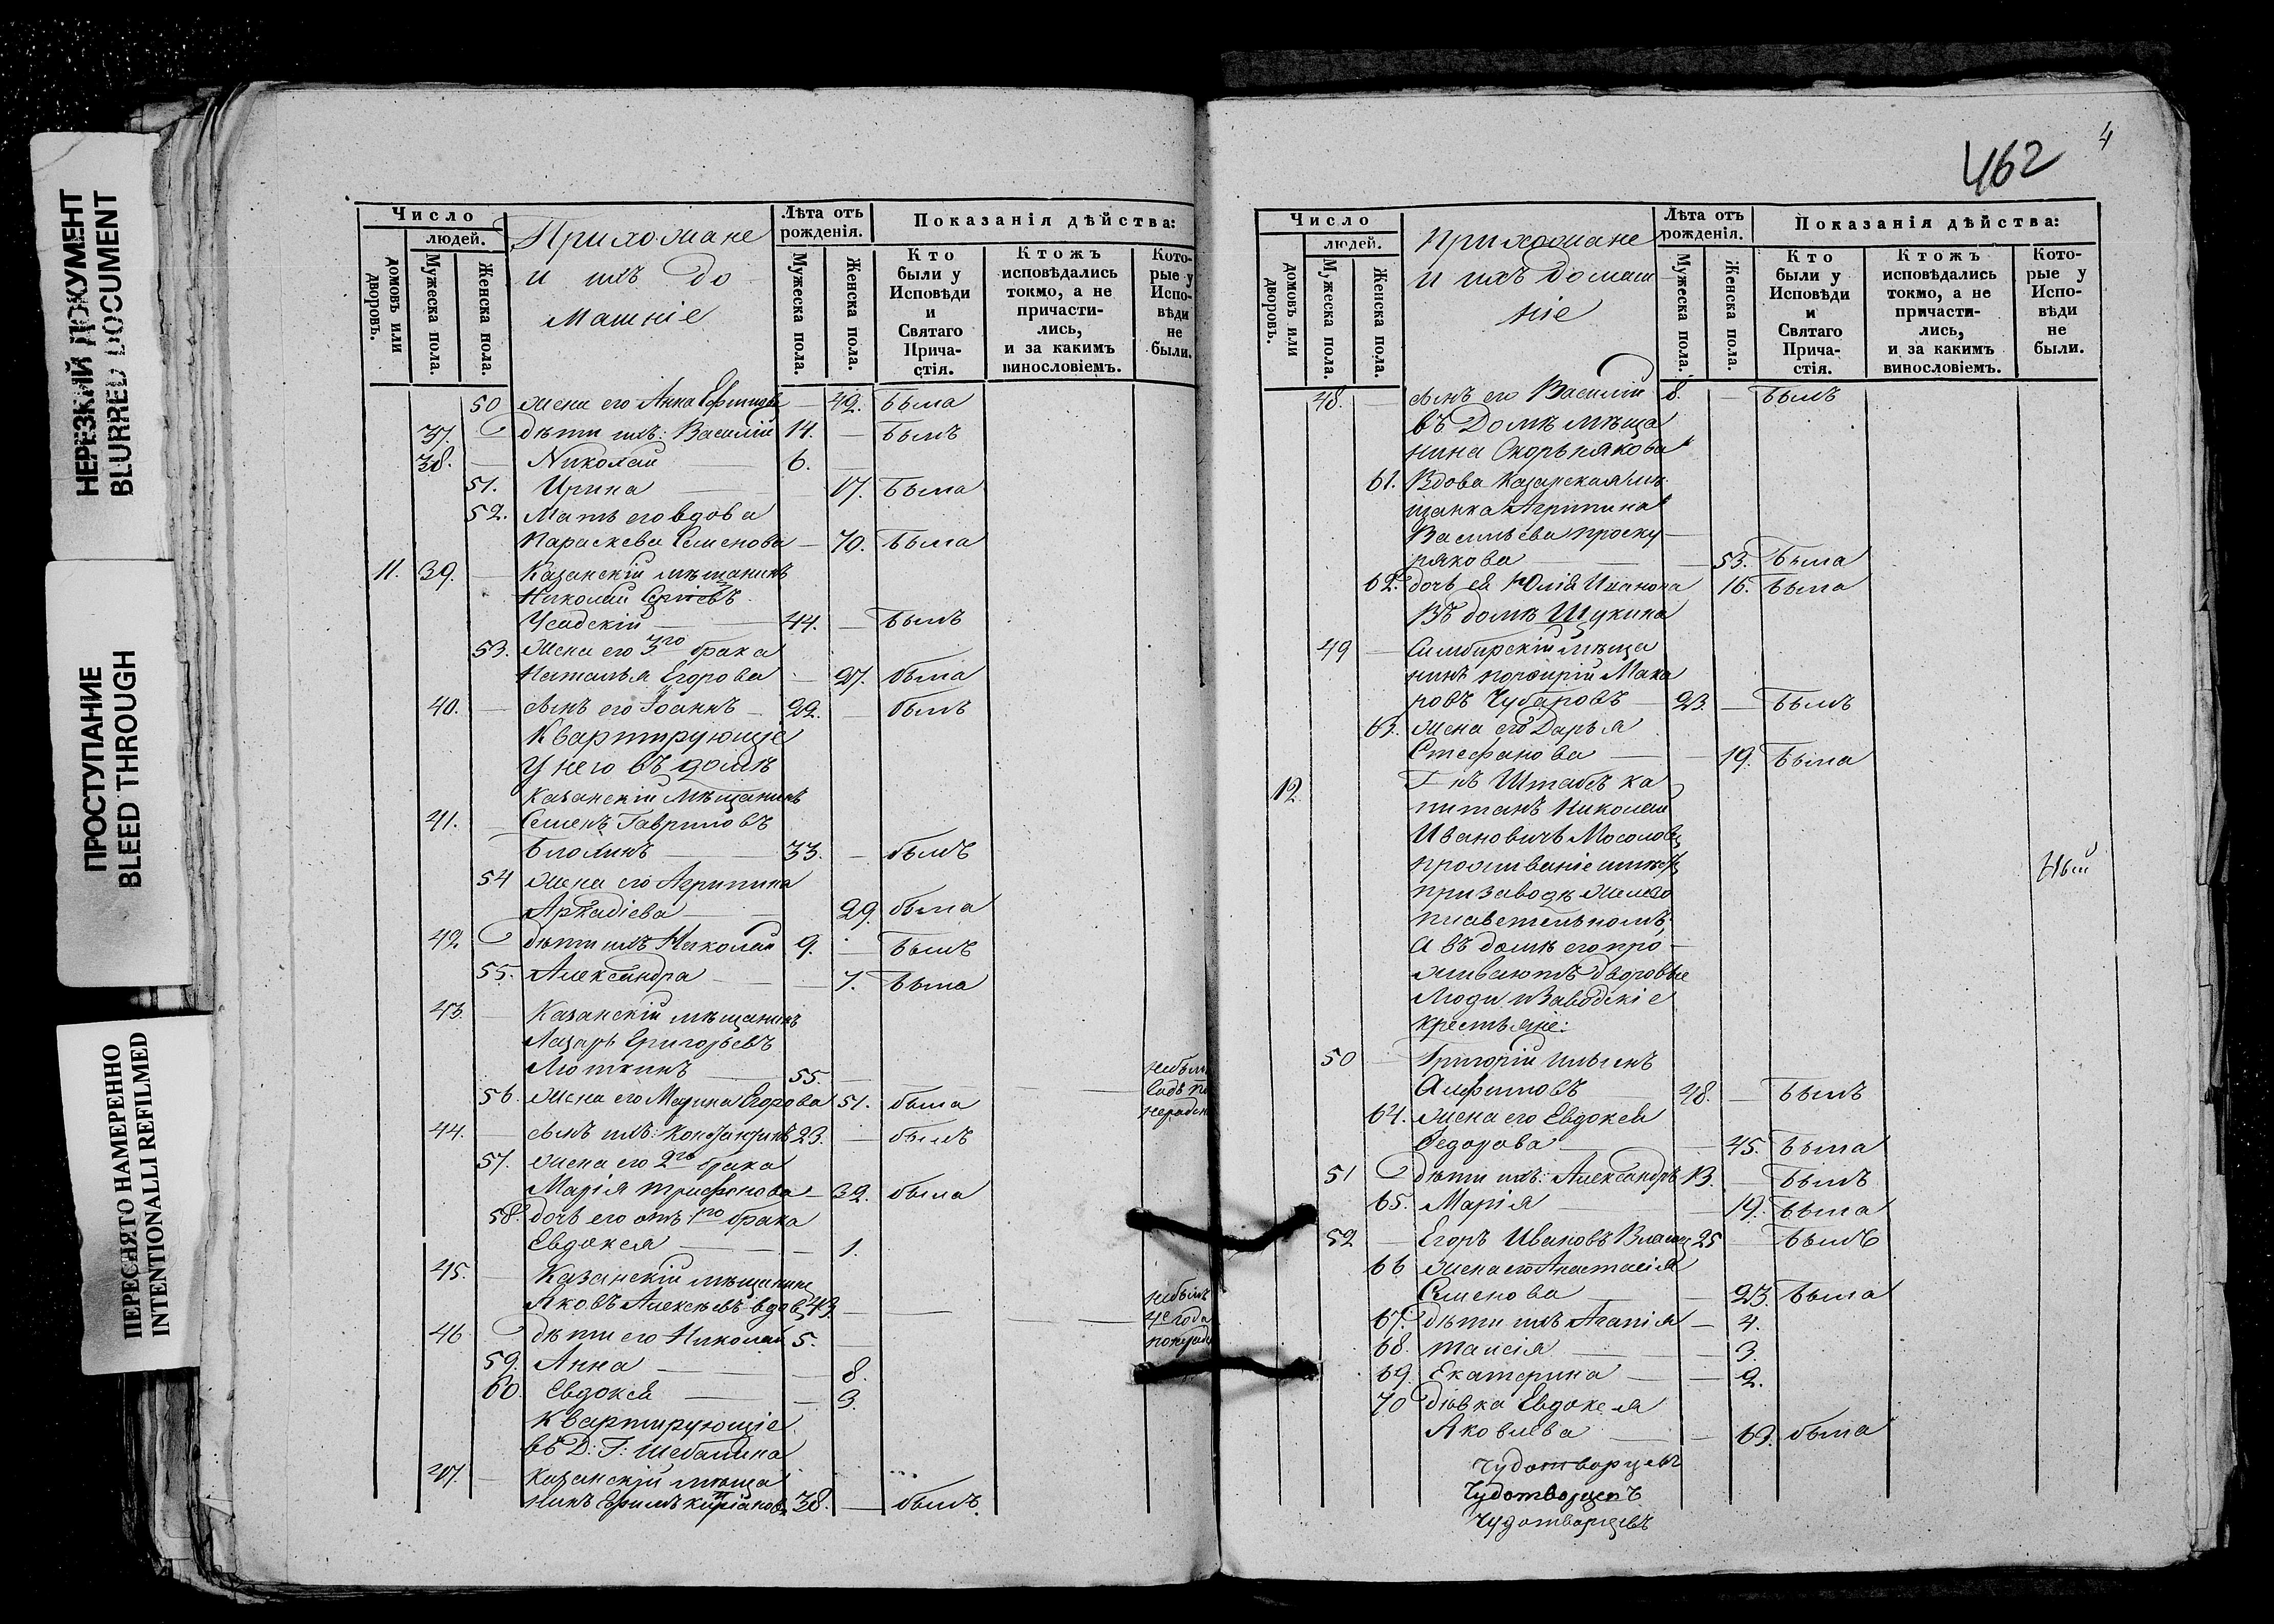 НЕРЕЗКИЙ ДОКУМЕНТ
BLURRED DOCUMENT
ПРОСТУПАНИЕ
BLEED THROUGH
ПЕРЕСНЯТО НАМЕРЕННО
INTENTIONALLI REFILMED
Число
людей.
домовъ или дворовъ.
Мужеска пола.
Женска пола.
Прихожане
и ихъ до
машніе
Лѣта отъ рожденія.
Мужеска пола.
Женска пола.
Показанія дѣйства:
Кто были у Исповѣди и Святаго Прича-стія.
Ктожъ исповѣдались токмо, а не причасти-лись, и за какимъ винословіемъ.
Кото-рые у Испо-вѣди не были.
50 жена его Анна 49. была
37. дѣти ихъ: Василій 14. — былъ
38. — Николай 6. —
51. Ирина — 17. была
52. Мать его вдова
Параскева Семенова — 70. была
11. 39. — Казанскій мѣщанинъ
Николай Сергѣевъ
Усадскій — 44. — былъ
53. жена его 3го брака
Наталья Егорова — 27. была
40. — сынъ его Іоаннъ — 22. — былъ
Квартирующіе
у него въ домѣ
Казанскій мѣщанинъ
41. — Семенъ Гавриловъ
Блохинъ — 33. — былъ
54 жена его Агрипина
Аркадіева — 29. была
42. дѣти ихъ Николай 9. — былъ
55. Александра — 7. была
43. — Казанскій мѣщанинъ
Лазарь Григорьевъ
Люткинъ — 55. —
56. жена его Марина Егорова 51. была
44. — сынъ ихъ: Константинъ 23. — былъ
57. жена его 2го брака
Марія Трифонова — 32. была
58. дочь его отъ 1го брака
Евдокея — 1.
45. — Казанскій мѣщанинъ
Яковъ Алексѣевъ вдов. 43. —
46 дѣти его Николай 5. —
59. Анна — 8.
60. Евдокея — 3.
Квартирующіе
въ Д: Г: Шебалина
47. — Казанскій мѣща
нинъ Ефимъ 38. — былъ.
462
4
Число
людей.
домовъ или дворовъ.
Мужеска пола.
Женска пола.
Прихожане
и ихъ домаш
ніе
Лѣта отъ рожденія.
Мужеска пола.
Женска пола.
Показанія дѣйства:
Кто были у Исповѣди и Святаго Прича-стія.
Ктожъ исповѣдались токмо, а не причасти-лись, и за какимъ винословіемъ.
Кото-рые у Испо-вѣди не были.
48. — сынъ его Василій 8. — былъ
въ Домѣ мѣща
нина Скорнякова
61. Вдова Казанская мѣ
щанка Агрипина
Васильева Проску
рякова — 53. была
62. дочь ея Юлія Иванова 16. была
Въ домѣ Щукина
49 — Симбирскій мѣща
нинъ Порфирій Мака
ровъ Чубаровъ — 23. — былъ
63. жена его Дарья
Стефанова — 19. была
12. Г нъ Штабсъ ка
питанъ Николай
Ивановичъ Мосоловъ
проживаніе
при заводѣ
а въ домѣ его про
живаютъ дворовые
Люди и Заводскіе
крестьяне:
50 — Григорій Ильинъ
48. — былъ
64. жена его Евдокея
Федорова — 45. была
51 дѣти ихъ: Александръ 13. — былъ
65. Марія — 19. была
52 — Егоръ Ивановъ 25 — былъ
66 жена его Анастасія
Семенова — 23. была
67. дѣти ихъ Агапія — 4.
68. Таисія — 3.
69. Екатерина — 2.
70 дѣвка Евдокея
Яковлева — 69. была
Чудотворцевъ
Чудотворцевъ
Чудотворцевъ